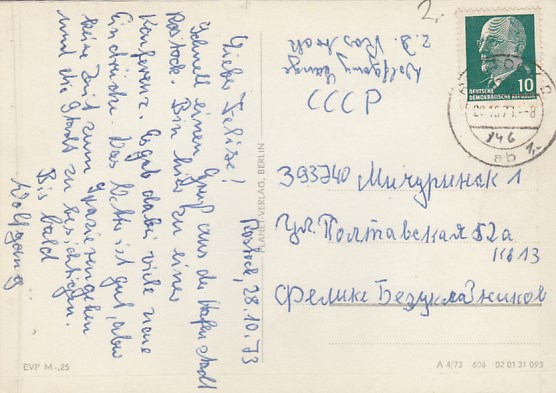 Rostock, 28.10.73
Lieber Felix!
Schnell einen Gruß aus der Hafenstadt
Rostock. Bin hier zu einer
Konferenz. Es gab dabei viele neue
Eindrücke. Das Wetter ist gut, aber
keine Zeit zum Spazierengehen
und die Stadt zu besichtigen.
Bis bald
Wolfgang
EVP M -,25
PLANET-VERLAG, BERLIN
2.
Wolfgang
z.Z. Rostock
DEUTSCHE
DEMOKRATISCHE REPUBLIK
10
946
ab
1,-
СССР
393740 Мичуринск 1
ул. Полтавская 52а
кв 13
Феликс Безукладников
A 4/73 606 02 01 31 093